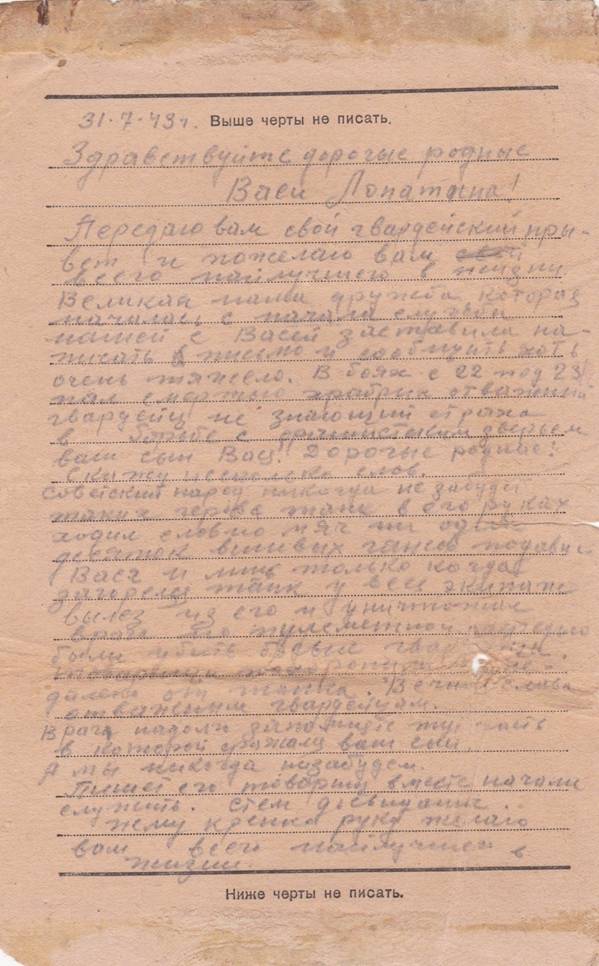 31.7.43 г. Выше черты не писать.
Здравствуйте дорогые родные
Васи Лопатина!
Передаю вам свой гвардейский при-
вет и пожелаю вам
всего найлучшего в жизни
Великая наша дружба которая
началась с начала службы
нашей с Васей заставила на-
писать письмо и сообщить хоть
очень тяжело. В боях с 22 под 23
пал смертью храбрых отважный
гвардейц не знающий страха
в борьбе с фашистским зверьем
ваш сын Вас! Дорогые родные!
Скажу несколько слов.
Советский народ никогда не забудет
таких герове танк в его руках
ходил словно мяч ни один
десяток вшивых гансов подавил
Вася и лиш только когда
загорелся танк у весь экипаж
вылез из его и уничтожал
врага
были убиты
далеко от танка. Вечная слава
отважным гвардейцам.
Врага надолго
в которой сражался ваш сын
А мы никогда незабудем.
Пишет его товарищ вместе начали
служить. стем досвидание.
Жму крепко руку желаю
вам всего найлучшего в
жизни.
Ниже черты не писать.